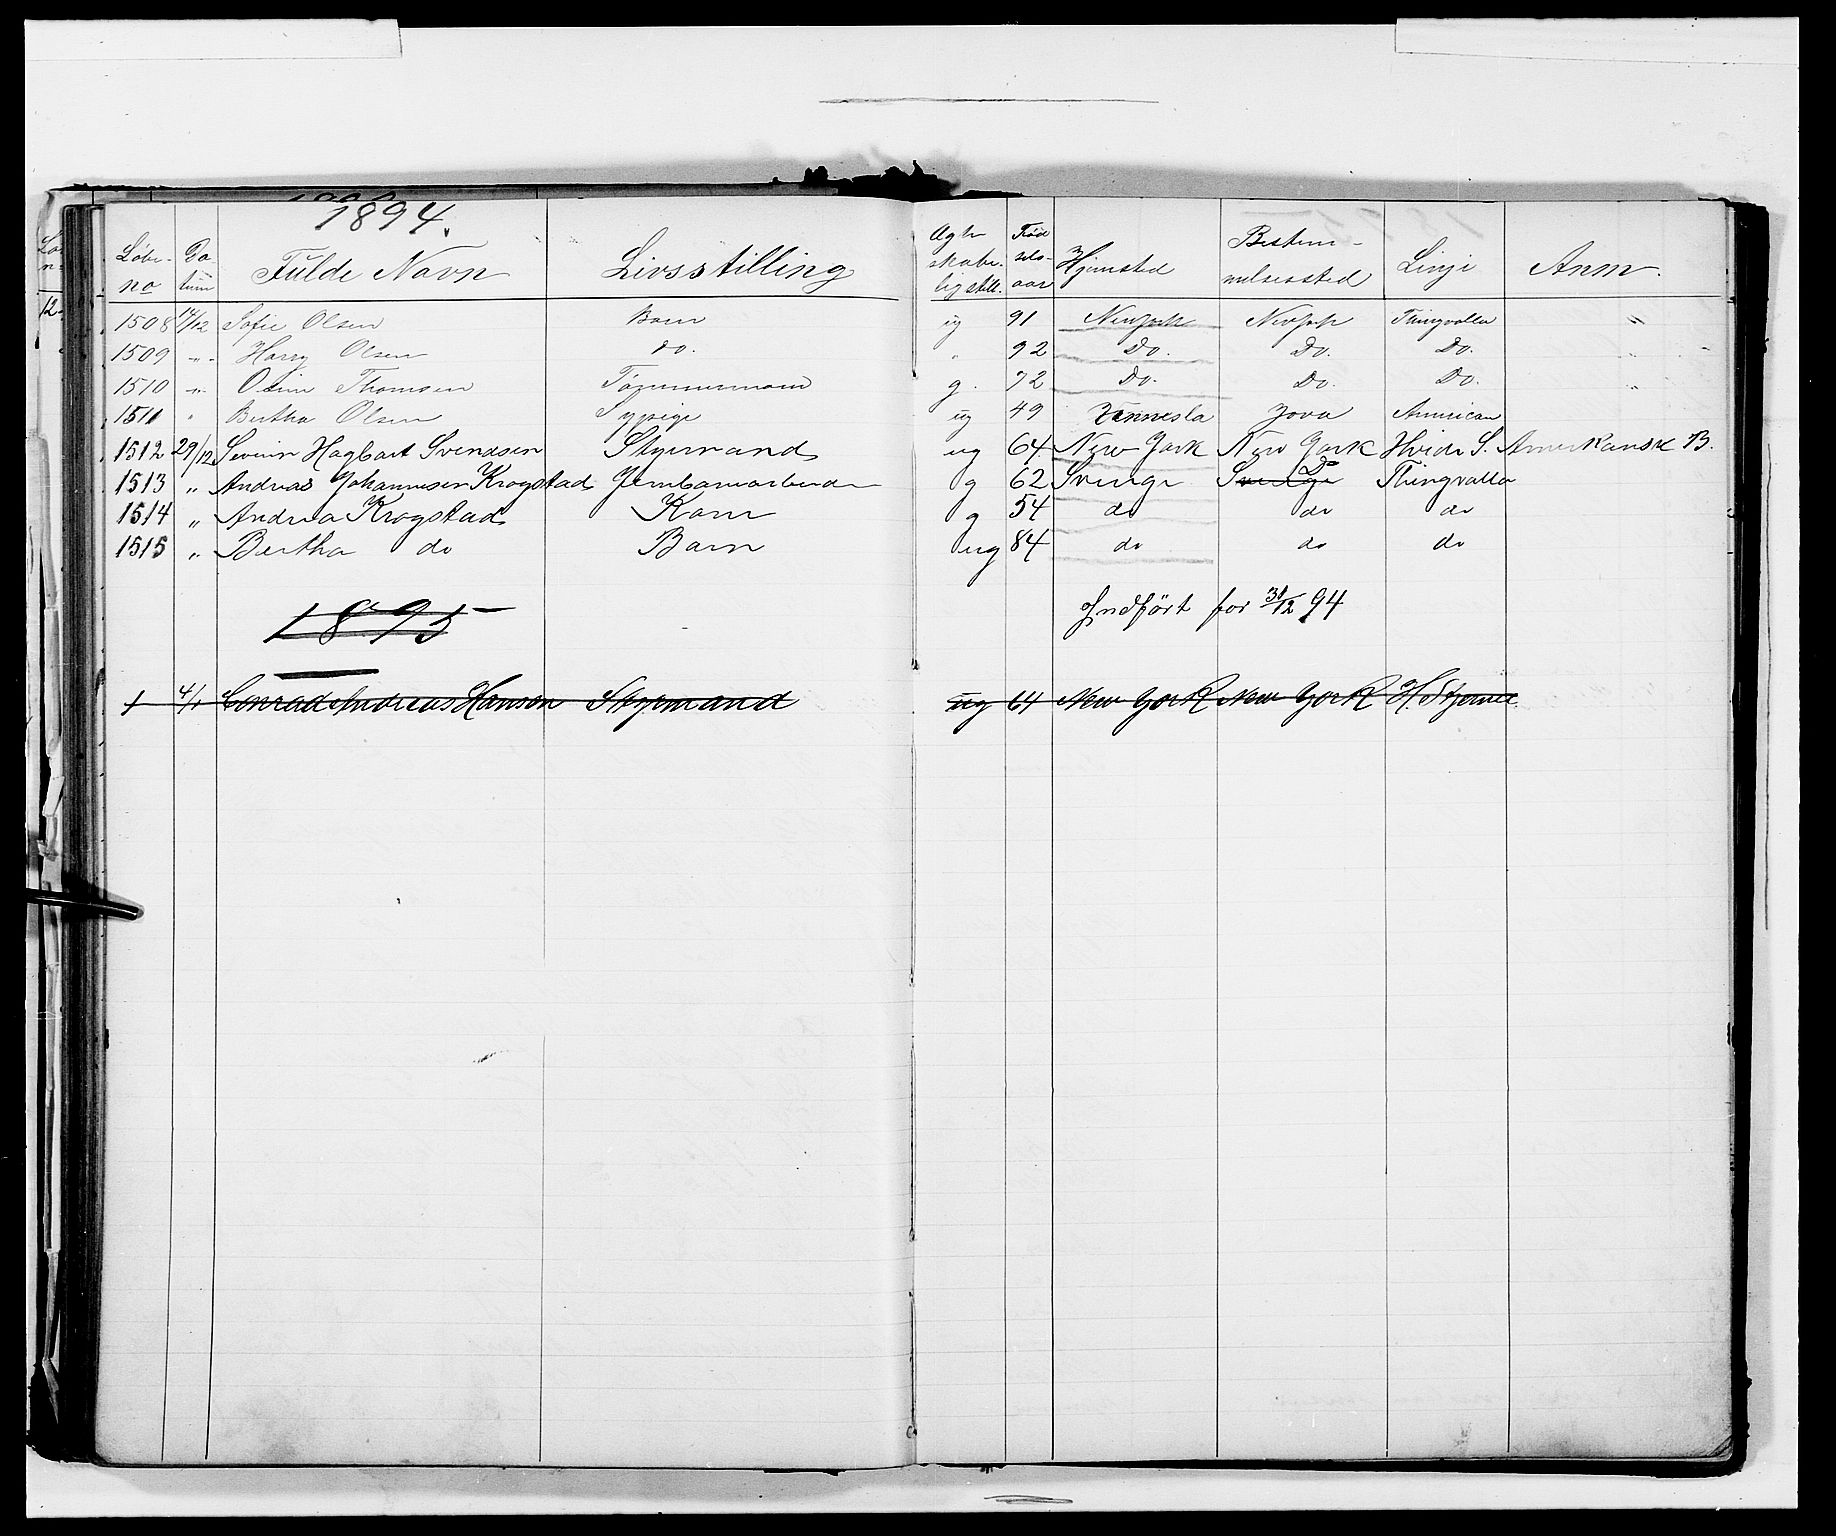 1894.
Løbe-no Datum Fulde Navn Livsstilling Ægteskabeligstill. Fødselsaar Hjemsted Bestemmelsessted Linje Anm.
1508 14/12 Sofie Olsen Barn ug 91 Newyork Newyork Thingvalla "
1509 " Harry Olsen Do. " 92 Do. Do. Do. "
1510 " Thomsen Tømmermand g. 72 Do. Do. Do. "
1511 " Bertha Olsen Sypige ug 49 Vennesla Jova American
1512 29/12 Severin Hagbart Svendsen Styrmand ug 64 New York New York Hvide S. Amerikansk B.
1513 " Andreas Johannesen Krogstad Jernbanearbeider g 62 Sverige Sverige Do Thingvalla
1514 " Andrea Krogstad Kone g 54 do do do
1515 " Bertha do Barn ug 84 do do do
Indført for 31/12 94
1895
1 4/1 Conrad Andreas Hanson Styrmand ug 64 New York New York H. Stjerne